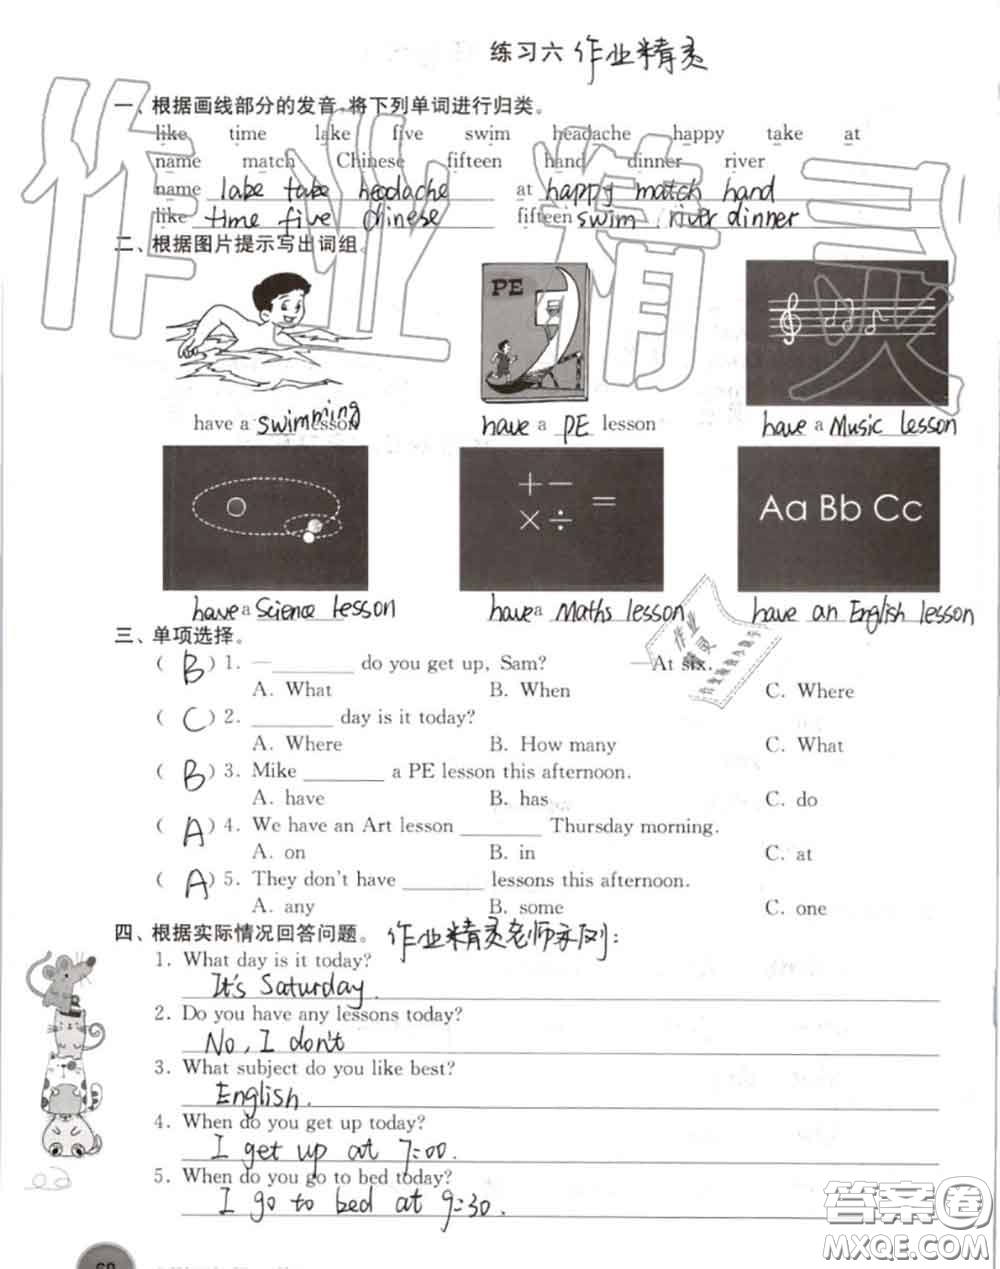 练习六 作业精灵
一、根据画线部分的发音,将下列单词进行归类。
like time lake five swim headache happy take at
name match Chinese fifteen hand dinner river
name lake take headache at happy match hand
like time five Chinese fifteen swim river dinner
二、根据图片提示写出词组。
PE
have a swimming lesson have a PE lesson have a Music lesson
+ − × ÷ =
Aa Bb Cc
have a Science lesson have a Maths lesson have an English lesson
三、单项选择。
( B ) 1. —________ do you get up, Sam? —At six.
A. What B. When C. Where
( C ) 2. ________ day is it today?
A. Where B. How many C. What
( B ) 3. Mike ________ a PE lesson this afternoon.
A. have B. has C. do
( A ) 4. We have an Art lesson ________ Thursday morning.
A. on B. in C. at
( A ) 5. They don't have ________ lessons this afternoon.
A. any B. some C. one
四、根据实际情况回答问题。 作业精灵老师示例:
1. What day is it today?
It's Saturday.
2. Do you have any lessons today?
No, I don't
3. What subject do you like best?
English.
4. When do you get up today?
I get up at 7:00.
5. When do you go to bed today?
I go to bed at 9:30.
作业精灵
答案卷
MXQE.COM